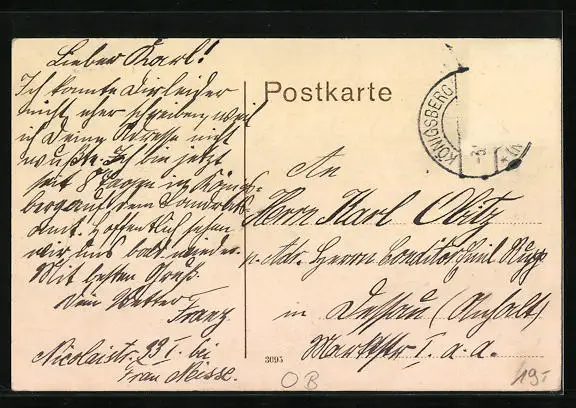 Lieber Karl!
Ich konnte Dir leider
nicht eher schreiben weil
ich Deine Adresse nicht
wußte. Ich bin jetzt
seit 8 Tagen in Königs-
berg auf dem
Amt. Hoffentlich sehen
wir uns bald wieder.
Mit besten Gruß
Dein Vetter
Franz
Nicolaistr. 39 I. bei
Frau Neisse.
Postkarte
KÖNIGSBERG
An
Herrn Karl
p. Adr. Herrn Conditor Emil
in Dessau (Anhalt)
Marktstr I. a. a.
3095
OB
19,-